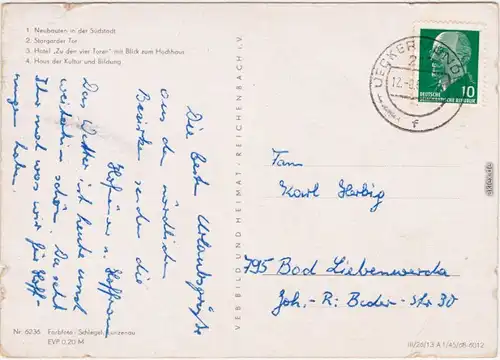 1. Neubauten in der Südstadt
2. Stargarder Tor
3. Hotel „Zu den vier Toren" mit Blick zum Hochhaus
4. Haus der Kultur und Bildung
Die besten Urlaubsgrüße
aus den nördlichen
Bezirken senden die
u. Hoffmann
Das Wetter ist heute und
weiterhin schön. Da seht
Ihr mal was wir für Hoff-
nungen haben.
Nr. 6236 Farbfoto: Schlegel,
EVP 0,20 M
VEB BILD UND HEIMAT · REICHENBACH i. V.
UECKERMÜNDE
2
12.-8.
f
DEUTSCHE
DEMOKRATISCHE REPUBLIK
10
Fam
Karl Herbig
795 Bad Liebenwerda
Joh.-R: Becher-Str 30
III/26/13 A 1/45/68-6012